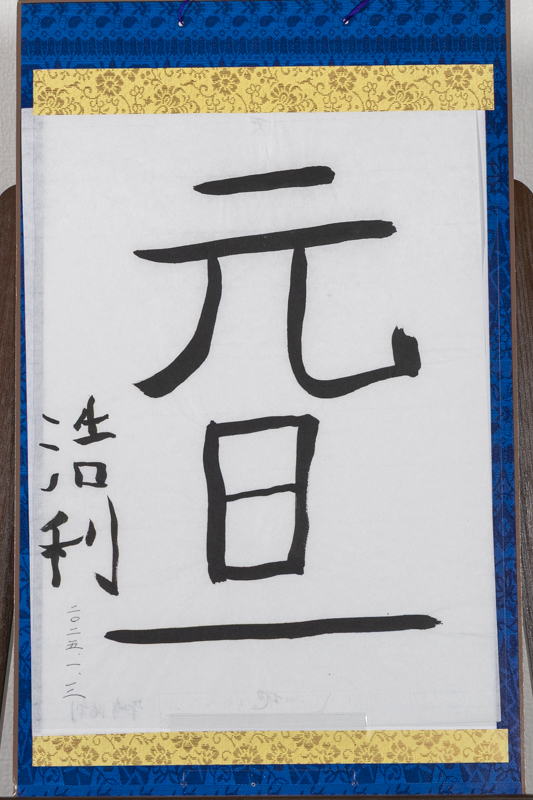 元旦
浩利
二〇二五.一.二